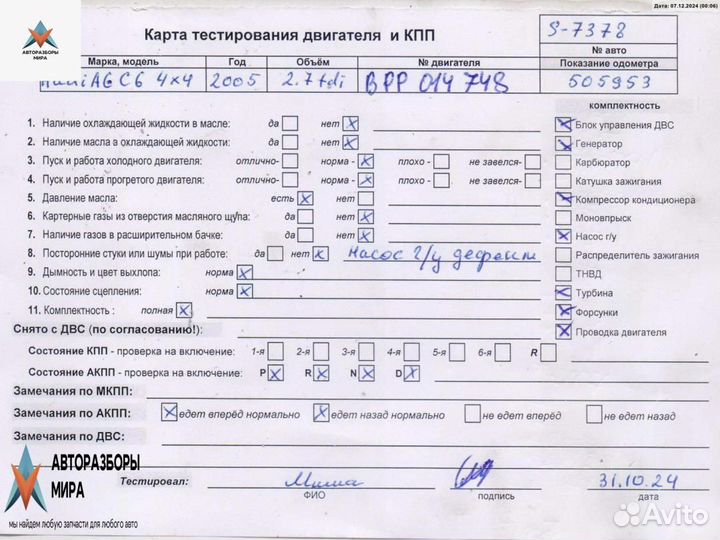 Дата: 07.12.2024 (00:06)
АВТОРАЗБОРЫ МИРА
Карта тестирования двигателя и КПП
S-7378
№ авто
Марка, модель Год Объём № двигателя Показание одометра
Audi A6 C6 4x4 2005 2.7 tdi BPP 014 748 505953
комплектность
1. Наличие охлаждающей жидкости в масле: да нет Блок управления ДВС
2. Наличие масла в охлаждающей жидкости: да нет Генератор
3. Пуск и работа холодного двигателя: отлично- норма - плохо - не завелся- Карбюратор
4. Пуск и работа прогретого двигателя: отлично- норма - плохо - не завелся- Катушка зажигания
5. Давление масла: есть нет Компрессор кондиционера
6. Картерные газы из отверстия масляного щупа: да нет Моновпрыск
7. Наличие газов в расширительном бачке: да нет Насос г/у
8. Посторонние стуки или шумы при работе: да нет Насос г/у дефект Распределитель зажигания
9. Дымность и цвет выхлопа: норма ТНВД
10. Состояние сцепления: норма Турбина
11. Комплектность : полная Форсунки
Снято с ДВС (по согласованию!): Проводка двигателя
Состояние КПП - проверка на включение: 1-я 2-я 3-я 4-я 5-я 6-я R
Состояние АКПП - проверка на включение: P R N D
Замечания по МКПП:
Замечания по АКПП: едет вперёд нормально едет назад нормально не едет вперёд не едет назад
Замечания по ДВС:
АВТОРАЗБОРЫ МИРА
Тестировал: Миша 31.10.24
ФИО подпись дата
мы найдем любую запчасти для любого авто
Avito